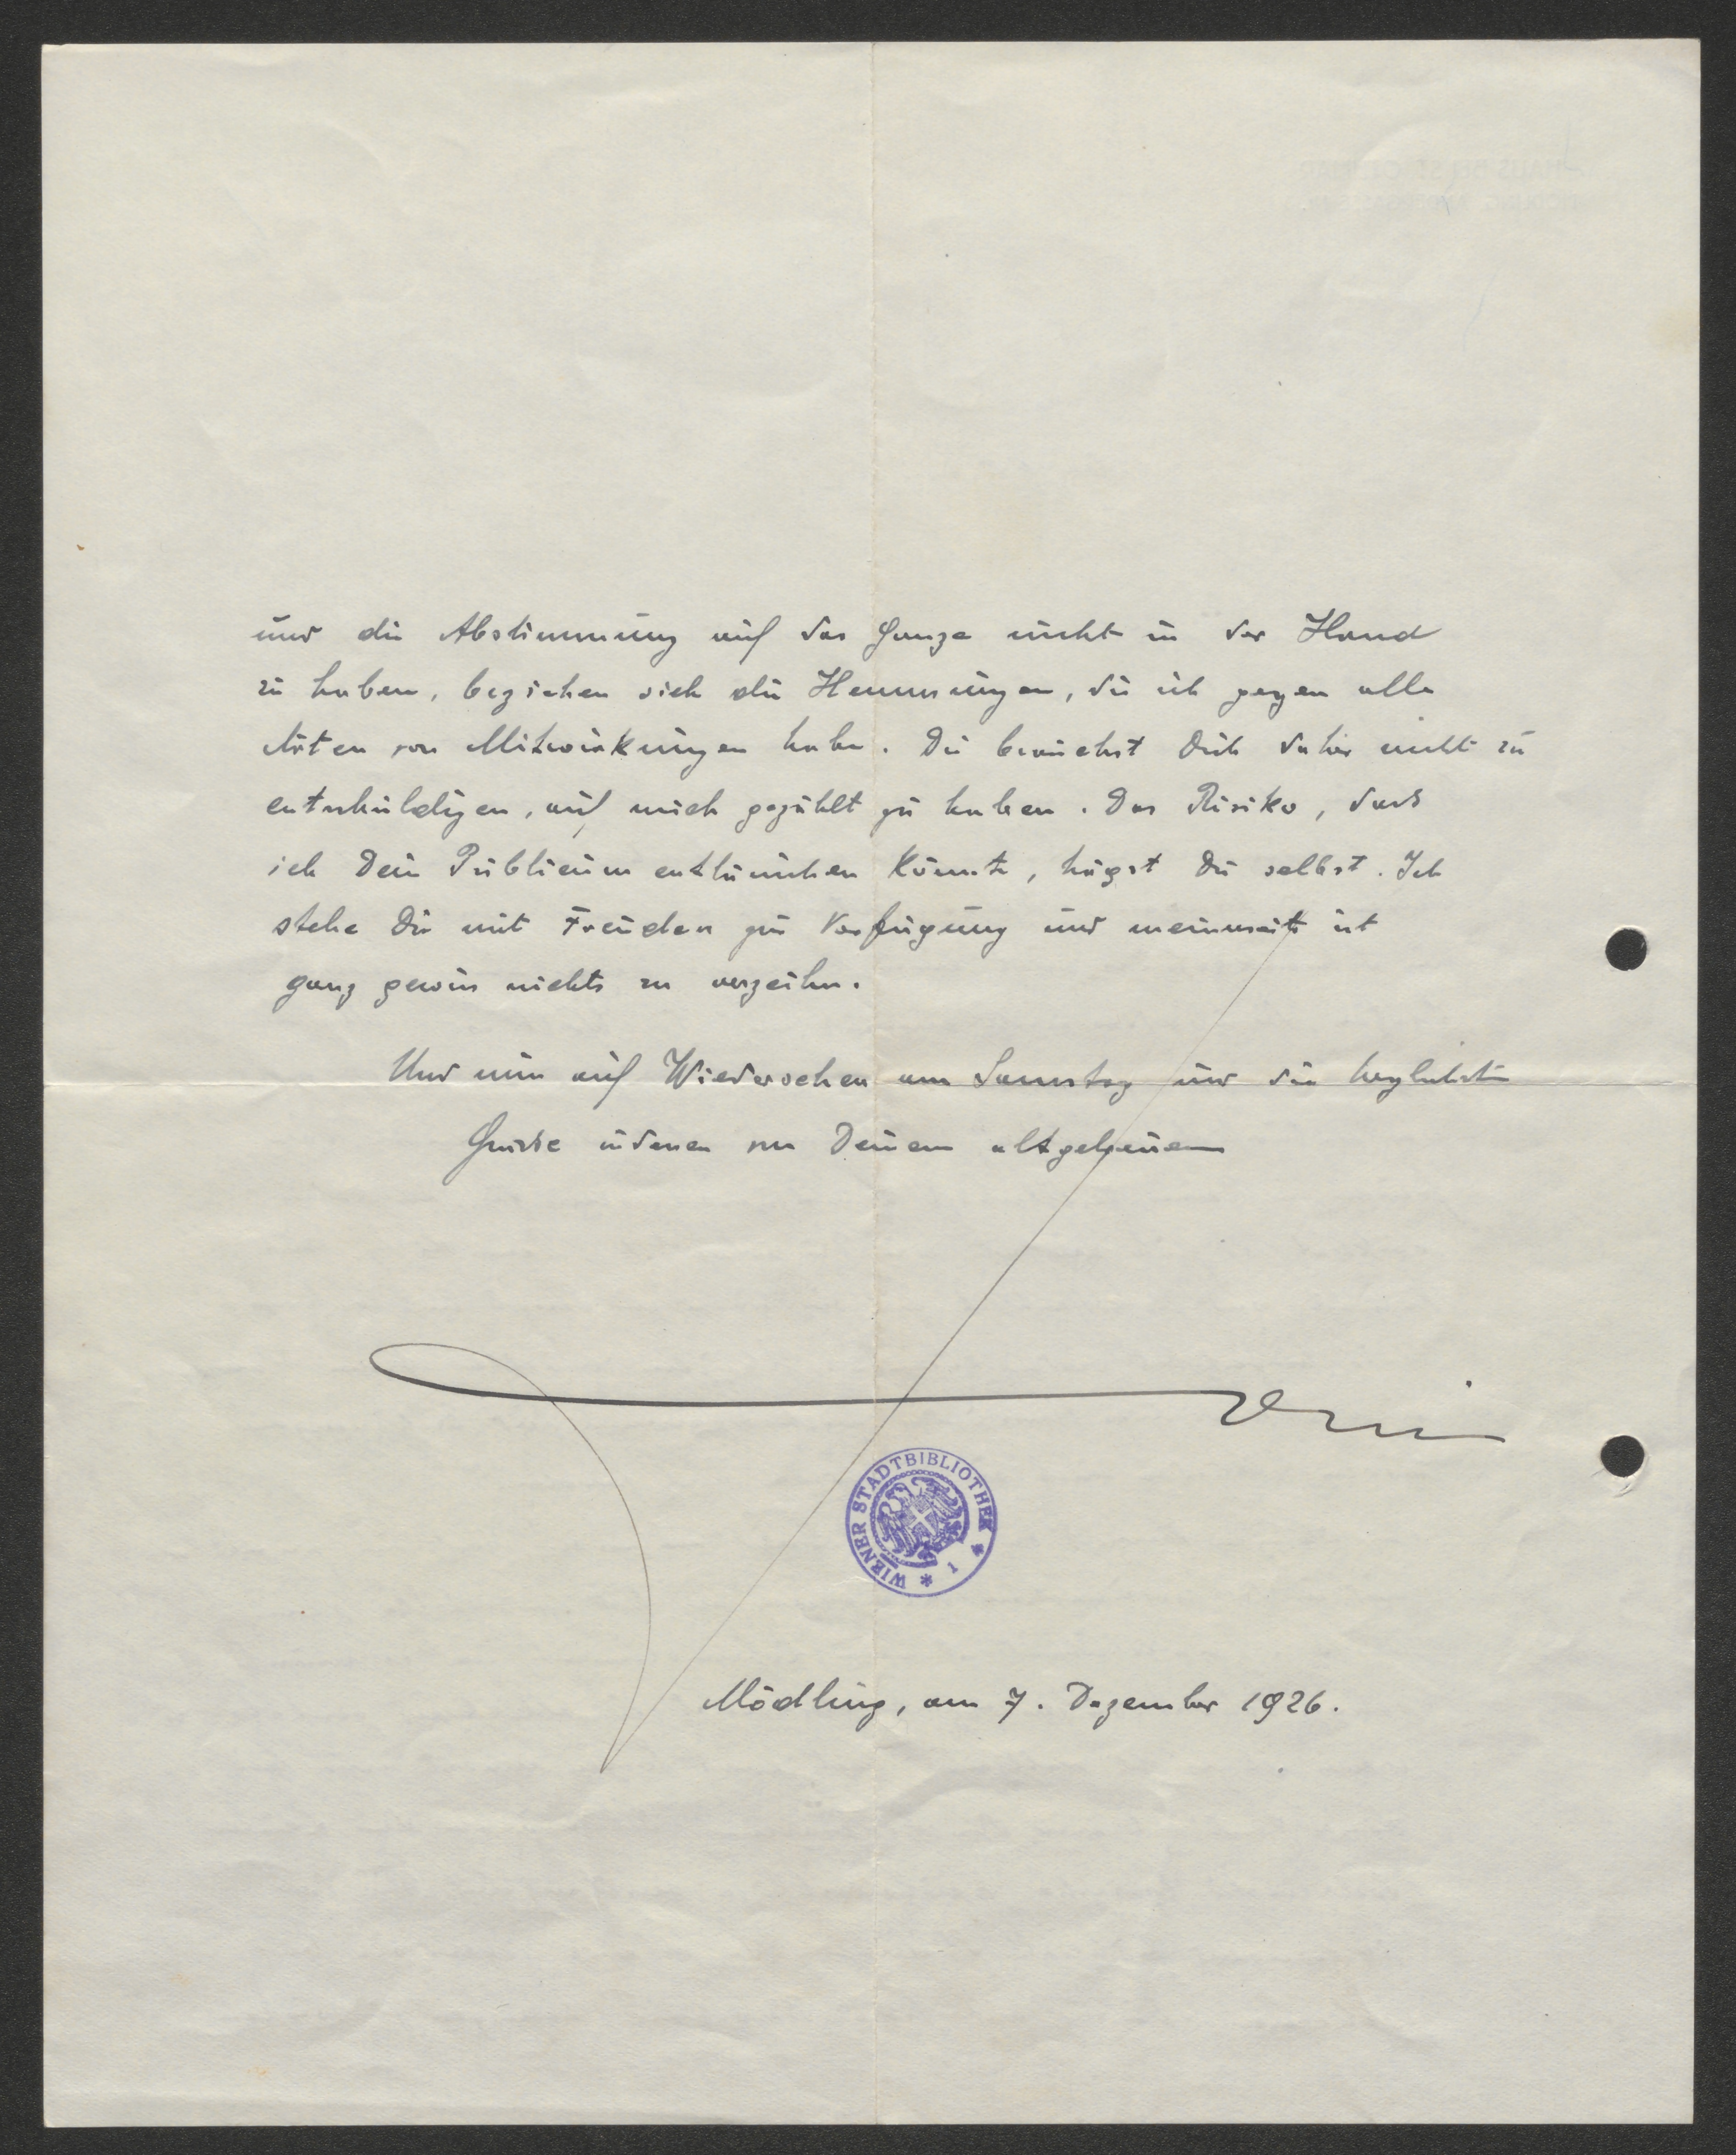 und die Abstimmung auf das Ganze nicht in der Hand
zu haben, beziehen sich die Hemmungen, die ich gegen alle
Arten von Mitwirkungen habe. Du brauchst Dich daher nicht zu
entschuldigen, auf mich gezählt zu haben. Das Risiko, dass
ich Dein Publicum enttäuschen könnte, trägst Du selbst. Ich
stehe Dir mit Freuden zur Verfügung und meinerseits ist
ganz gewiss nichts zu verzeihn.
Und nun auf Wiedersehen am Samstag und die herzlichsten
Grüsse indessen von Deinem altgetreuen
WIENER STADTBIBLIOTHEK * 1 *
Mödling, am 7. Dezember 1926.